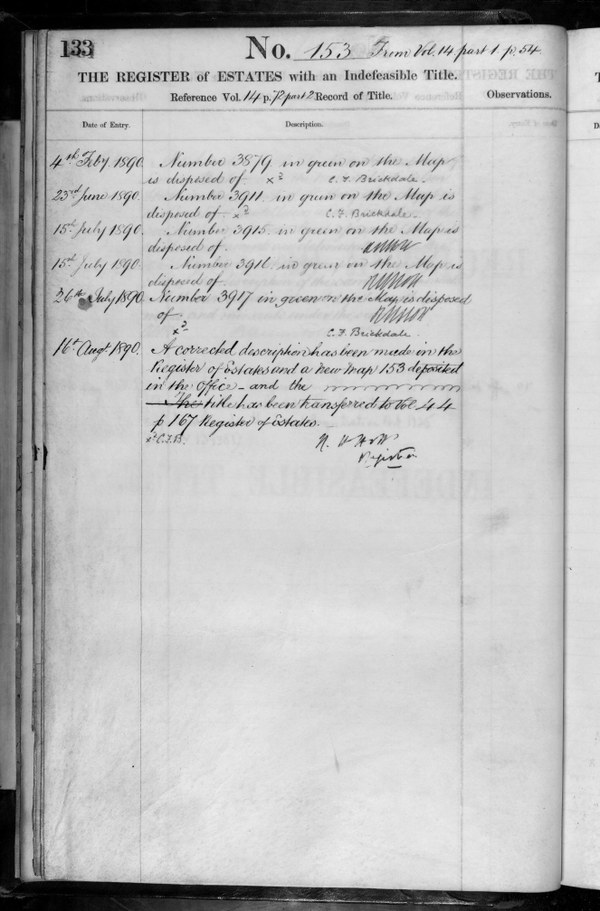 133
No. 153 From Vol. 14 part 1 p. 54
THE REGISTER of ESTATES with an Indefeasible Title.
Reference Vol. 14 p. part 2 Record of Title.
Observations.
Date of Entry.
Description.
4th Feby 1890. Number 3879 in green on the Map
is disposed of x² C. F. Brickdale.
23rd June 1890. Number 3911. in green on the Map is
disposed of. x² C. F. Brickdale.
15th July 1890. Number 3915. in green on the Map is
disposed of.
15th July 1890. Number 3916. in green on the Map is
disposed of.
26th July 1890 Number 3917 in green on the Map is disposed
of
x² C. F. Brickdale.
16th Augt. 1890. A corrected description has been made in the
Register of Estates and a new map 153 deposited
in the office – and the
The title has been transferred to Vol 44
p 167 Register of Estates.
x² C.F.B.
Registrar